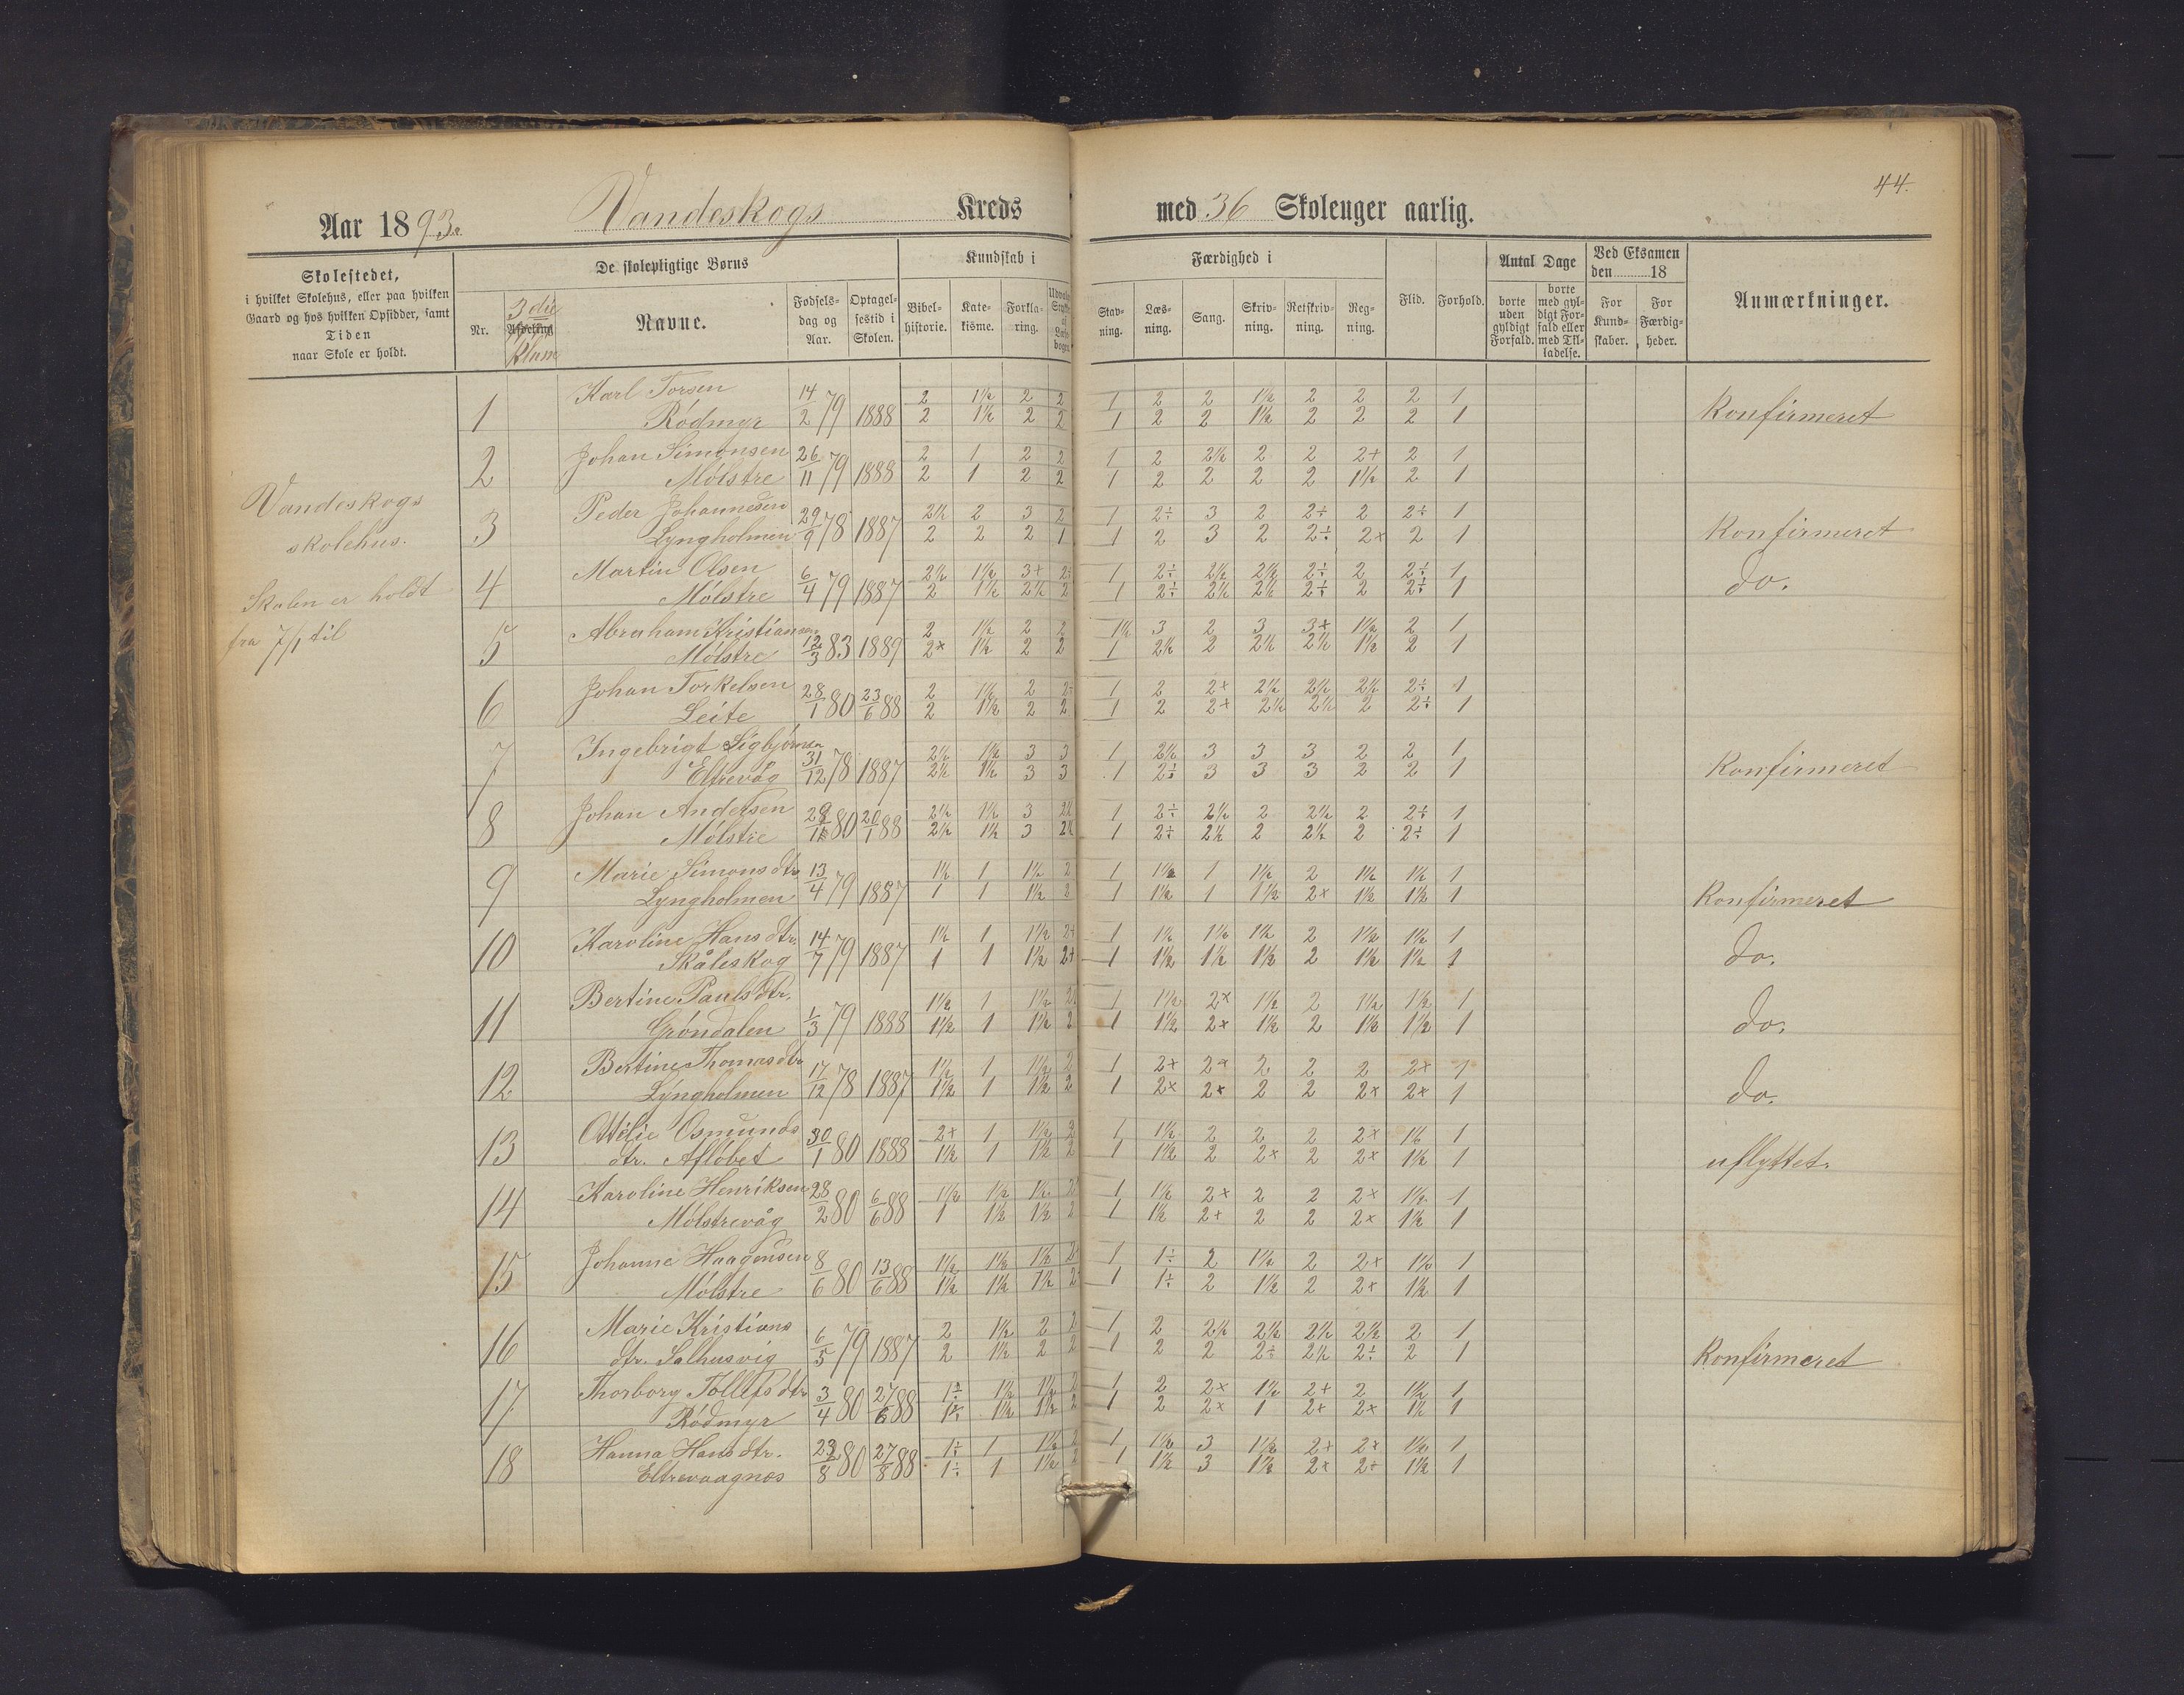 44.
Aar 1893. Vandeskogs Kreds med 36 Skoleuger aarlig.
Skolestedet, i hvilket Skolehus, eller paa hvilken Gaard og hos hvilken Opsidder, samt Tiden naar Skole er holdt.
De skolepligtige Børns
Nr. 3die Afdeling Klasse Navne. Fødselsdag og Aar. Optagelsestid i Skolen.
Kundskab i
Bibelhistorie. Katekisme. Forklaring. Udvalgte Stykker af Læsebogen.
Færdighed i
Stavning. Læsning. Sang. Skrivning. Retskrivning. Regning.
Flid. Forhold.
Antal Dage
borte uden gyldigt Forfald. borte med gyldigt Forfald eller med Tilladelse.
Ved Eksamen den 18
For Kundskaber. For Færdigheder.
Anmærkninger.
Vandeskogs
skolehus.
Skolen er holdt
fra 7/1 til
1 Karl Torsen 14/2 79 1888 2 1½ 2 2 1 2 2 1½ 2 2 2 1 Konfirmeret
Rödmyr 2 1½ 2 2 1 2 2 1½ 2 2 2 1
2 Johan Simonsen 26/11 79 1888 2 1 2 2 1 2 2½ 2 2 2+ 2 1
Mölstre 2 1 2 2 1 2 2 2 2 1½ 2 1
3 Peder Johannesen 29/9 78 1887 2½ 2 3 2 1 2÷ 3 2 2÷ 2 2÷ 1 Konfirmeret
Lyngholmen 2 2 2 1 1 2 3 2 2÷ 2+ 2 1
4 Martin Olsen 6/4 79 1887 2½ 1½ 3+ 2÷ 1 2÷ 2½ 2½ 2÷ 2 2÷ 1 do.
Mölstre 2 1½ 2½ 2 1 2÷ 2½ 2½ 2÷ 2 2÷ 1
5 Abraham Kristiansen 12/3 83 1889 2 1½ 2 2 1½ 3 2 3 3+ 1½ 2 1
Mölstre 2+ 1½ 2 2 1 2½ 2 2½ 2½ 1½ 2 1
6 Johan Torkelsen 28/1 80 23/6 88 2 1½ 2 2÷ 1 2 2+ 2½ 2½ 2½ 2÷ 1
Leite 2 1½ 2 2 1 2 2+ 2½ 2½ 2 2÷ 1
7 Ingebrigt Sigbjörnsen 31/12 78 1887 2½ 1½ 3 3 1 2½ 3 3 3 2 2 1 Konfirmeret
Eltrevåg 2½ 1½ 3 3 1 2÷ 3 3 3 2 2 1
8 Johan Andersen 80 20/1 88 2½ 1½ 3 2½ 1 2÷ 2½ 2 2½ 2 2÷ 1
Mölstre 2½ 1½ 3 2½ 1 2÷ 2½ 2 2½ 2 2÷ 1
9 Marie Simonsdtr. 13/4 79 1887 1½ 1 1½ 2 1 1½ 1 1½ 2 1½ 1½ 1 Konfirmeret
Lyngholmen 1 1 1½ 2 1 1½ 1 1½ 2+ 1½ 1½ 1
10 Karoline Hansdtr. 14/7 79 1887 1½ 1 1½ 2+ 1 1½ 1½ 1½ 2 1½ 1½ 1 do.
Skåleskog 1 1 1½ 2+ 1 1½ 1½ 1½ 2 1½ 1½ 1
11 Bertine Paulsdtr. 1/3 79 1888 1½ 1 1½ 2 1 1½ 2+ 1½ 2 1½ 1½ 1 do.
Gröndalen 1½ 1 1½ 2 1 1½ 2+ 1½ 2 1½ 1½ 1
12 Bertine Thomasdtr. 17/12 78 1887 1½ 1 1½ 2 1 2+ 2+ 2 2 2 2+ 1 do.
Lyngholmen 1½ 1 1½ 2 1 2+ 2+ 2 2 2+ 2+ 1
13 Otelie Osmunds 30/1 80 1888 2+ 1 1½ 2 1 1½ 2 2 2 2+ 1½ 1 uflyttet.
dtr. Aflöbet 1½ 1 1½ 2 1 1½ 2 2+ 2 2+ 1½ 1
14 Karoline Henriksen 28/2 80 6/6 88 1½ 1½ 1½ 2 1 1½ 2+ 2 2 2+ 1½ 1
Mölstrevåg 1 1½ 1½ 2 1 1½ 2+ 2 2 2+ 1½ 1
15 Johanne Haagensen 8/6 80 13/6 88 1½ 1½ 1½ 2 1 1÷ 2 1½ 2 2+ 1½ 1
Mölstre 1½ 1½ 1½ 2 1 1÷ 2 1½ 2 2+ 1½ 1
16 Marie Kristians 6/5 79 1887 2 1½ 2 2 1 2 2½ 2½ 2½ 2½ 2 1 Konfirmeret
dtr. Salhusvig 2 1½ 2 2 1 2 2 2÷ 2½ 2÷ 2 1
17 Thorborg Tollefsdtr. 3/4 80 27/6 88 1÷ 1½ 1½ 2 1 2 2+ 1½ 2+ 2 1½ 1
Rödmyr 1÷ 1½ 1½ 2 1 2 2+ 1 2+ 2+ 1½ 1
18 Hanna Hansdtr. 23/8 80 27/8 88 1÷ 1 1½ 2 1 1½ 3 1½ 2+ 2+ 1½ 1
Eltrevaagnæs 1÷ 1 1½ 2 1 1½ 3 1½ 2+ 2÷ 1½ 1